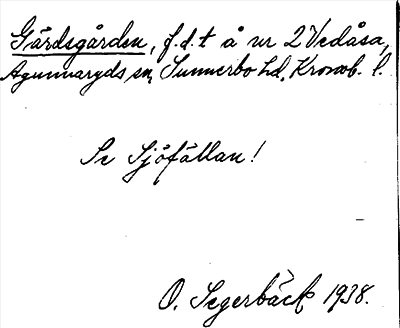 Gärdsgården, f.d.t å nr 2 Vedåsa,
Agunnaryds sn, Sunnerbo hd, Kronob. l.
Se Sjöfållan!
O. Segerbäck 1938.